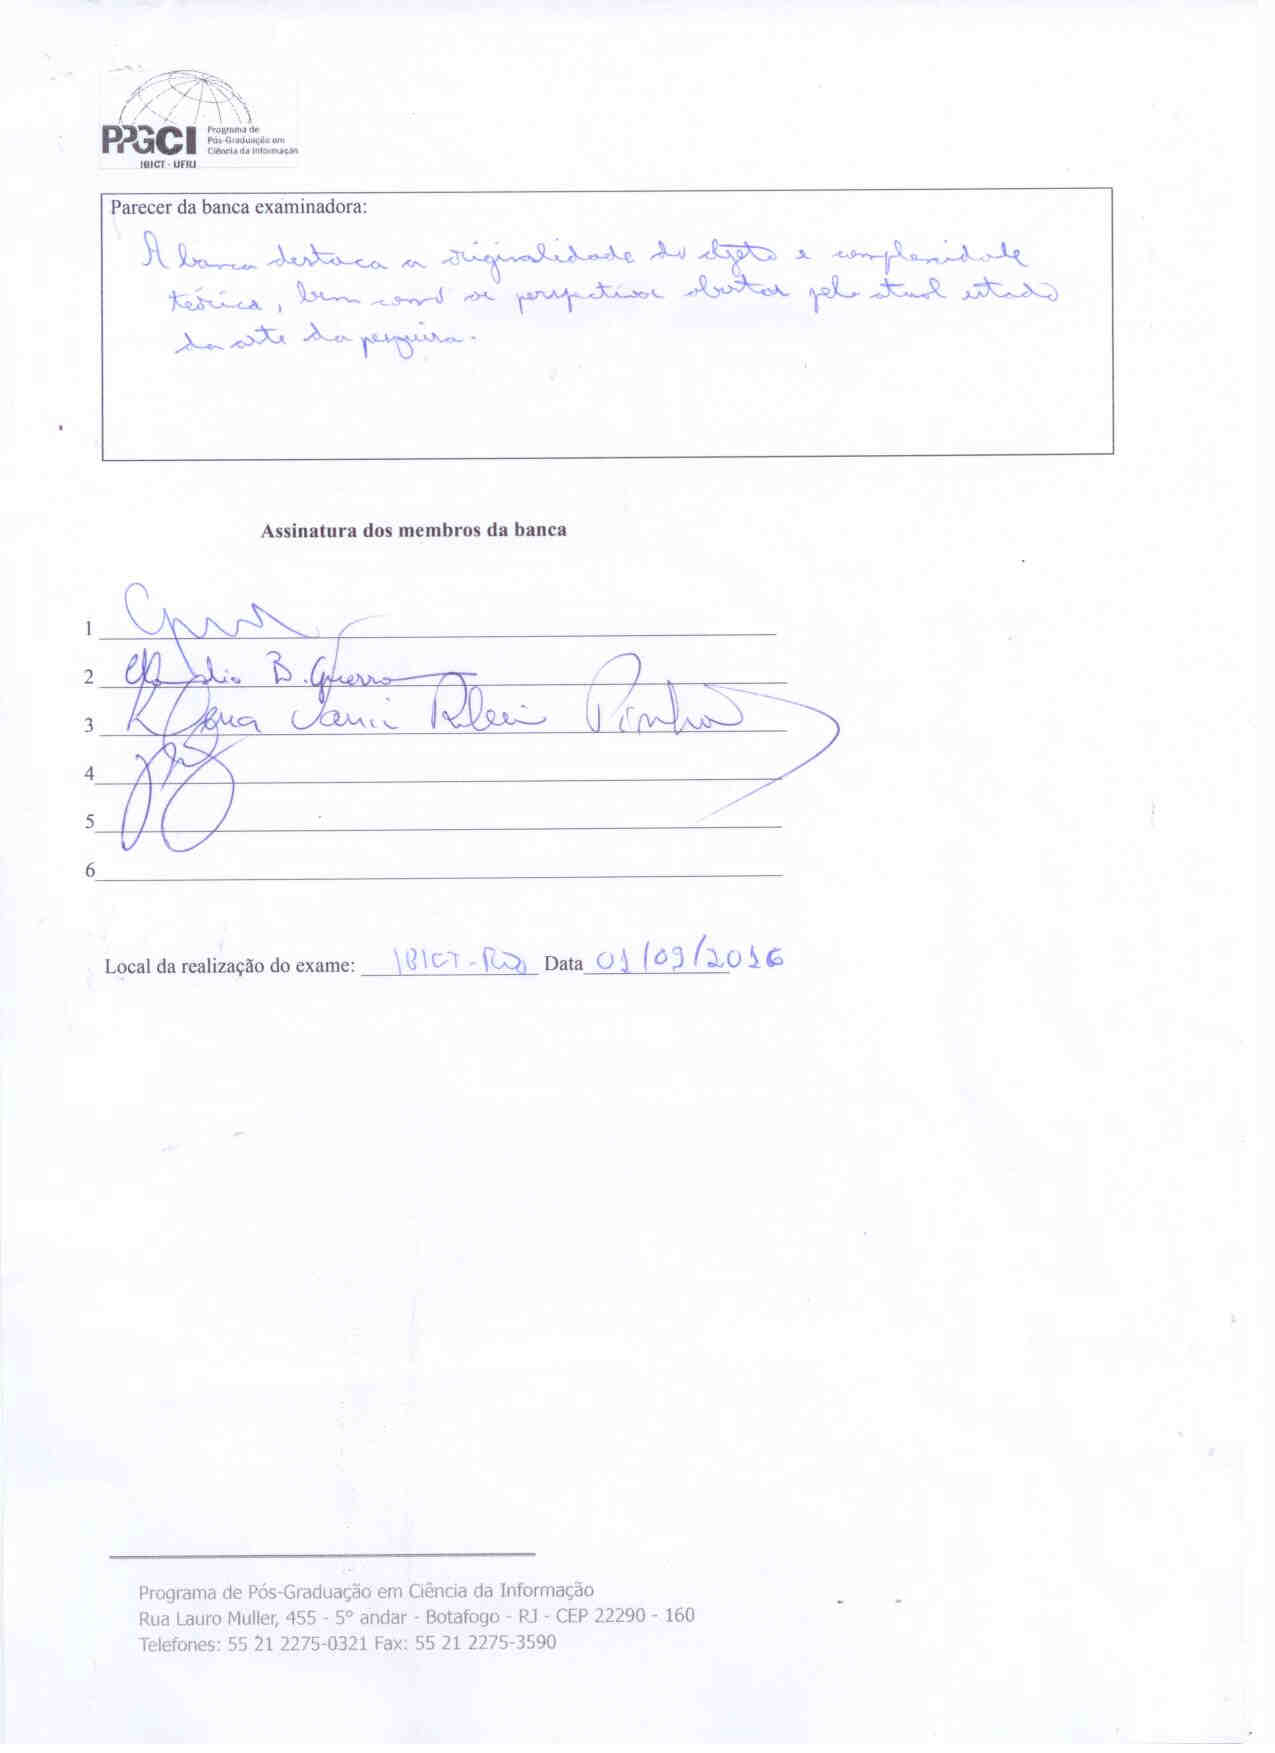 PPGCI
Programa de
Pós-Graduação em
Ciência da Informação
IBICT - UFRJ
Parecer da banca examinadora:
A banca destaca a originalidade do objeto e complexidade
teórica, bem como as perspectivas abertas pelo atual estado
da arte da pesquisa.
Assinatura dos membros da banca
1
2 B. Guerra
3 Pinho
4
5
6
Local da realização do exame: IBICT-RJ Data 01/09/2016
Programa de Pós-Graduação em Ciência da Informação
Rua Lauro Muller, 455 - 5º andar - Botafogo - RJ - CEP 22290 - 160
Telefones: 55 21 2275-0321 Fax: 55 21 2275-3590